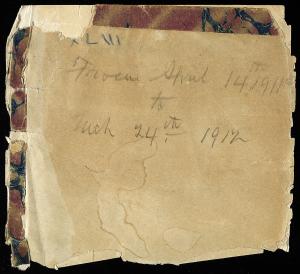 XLVII
From April 14th 1911
to
Mch 24th 1912